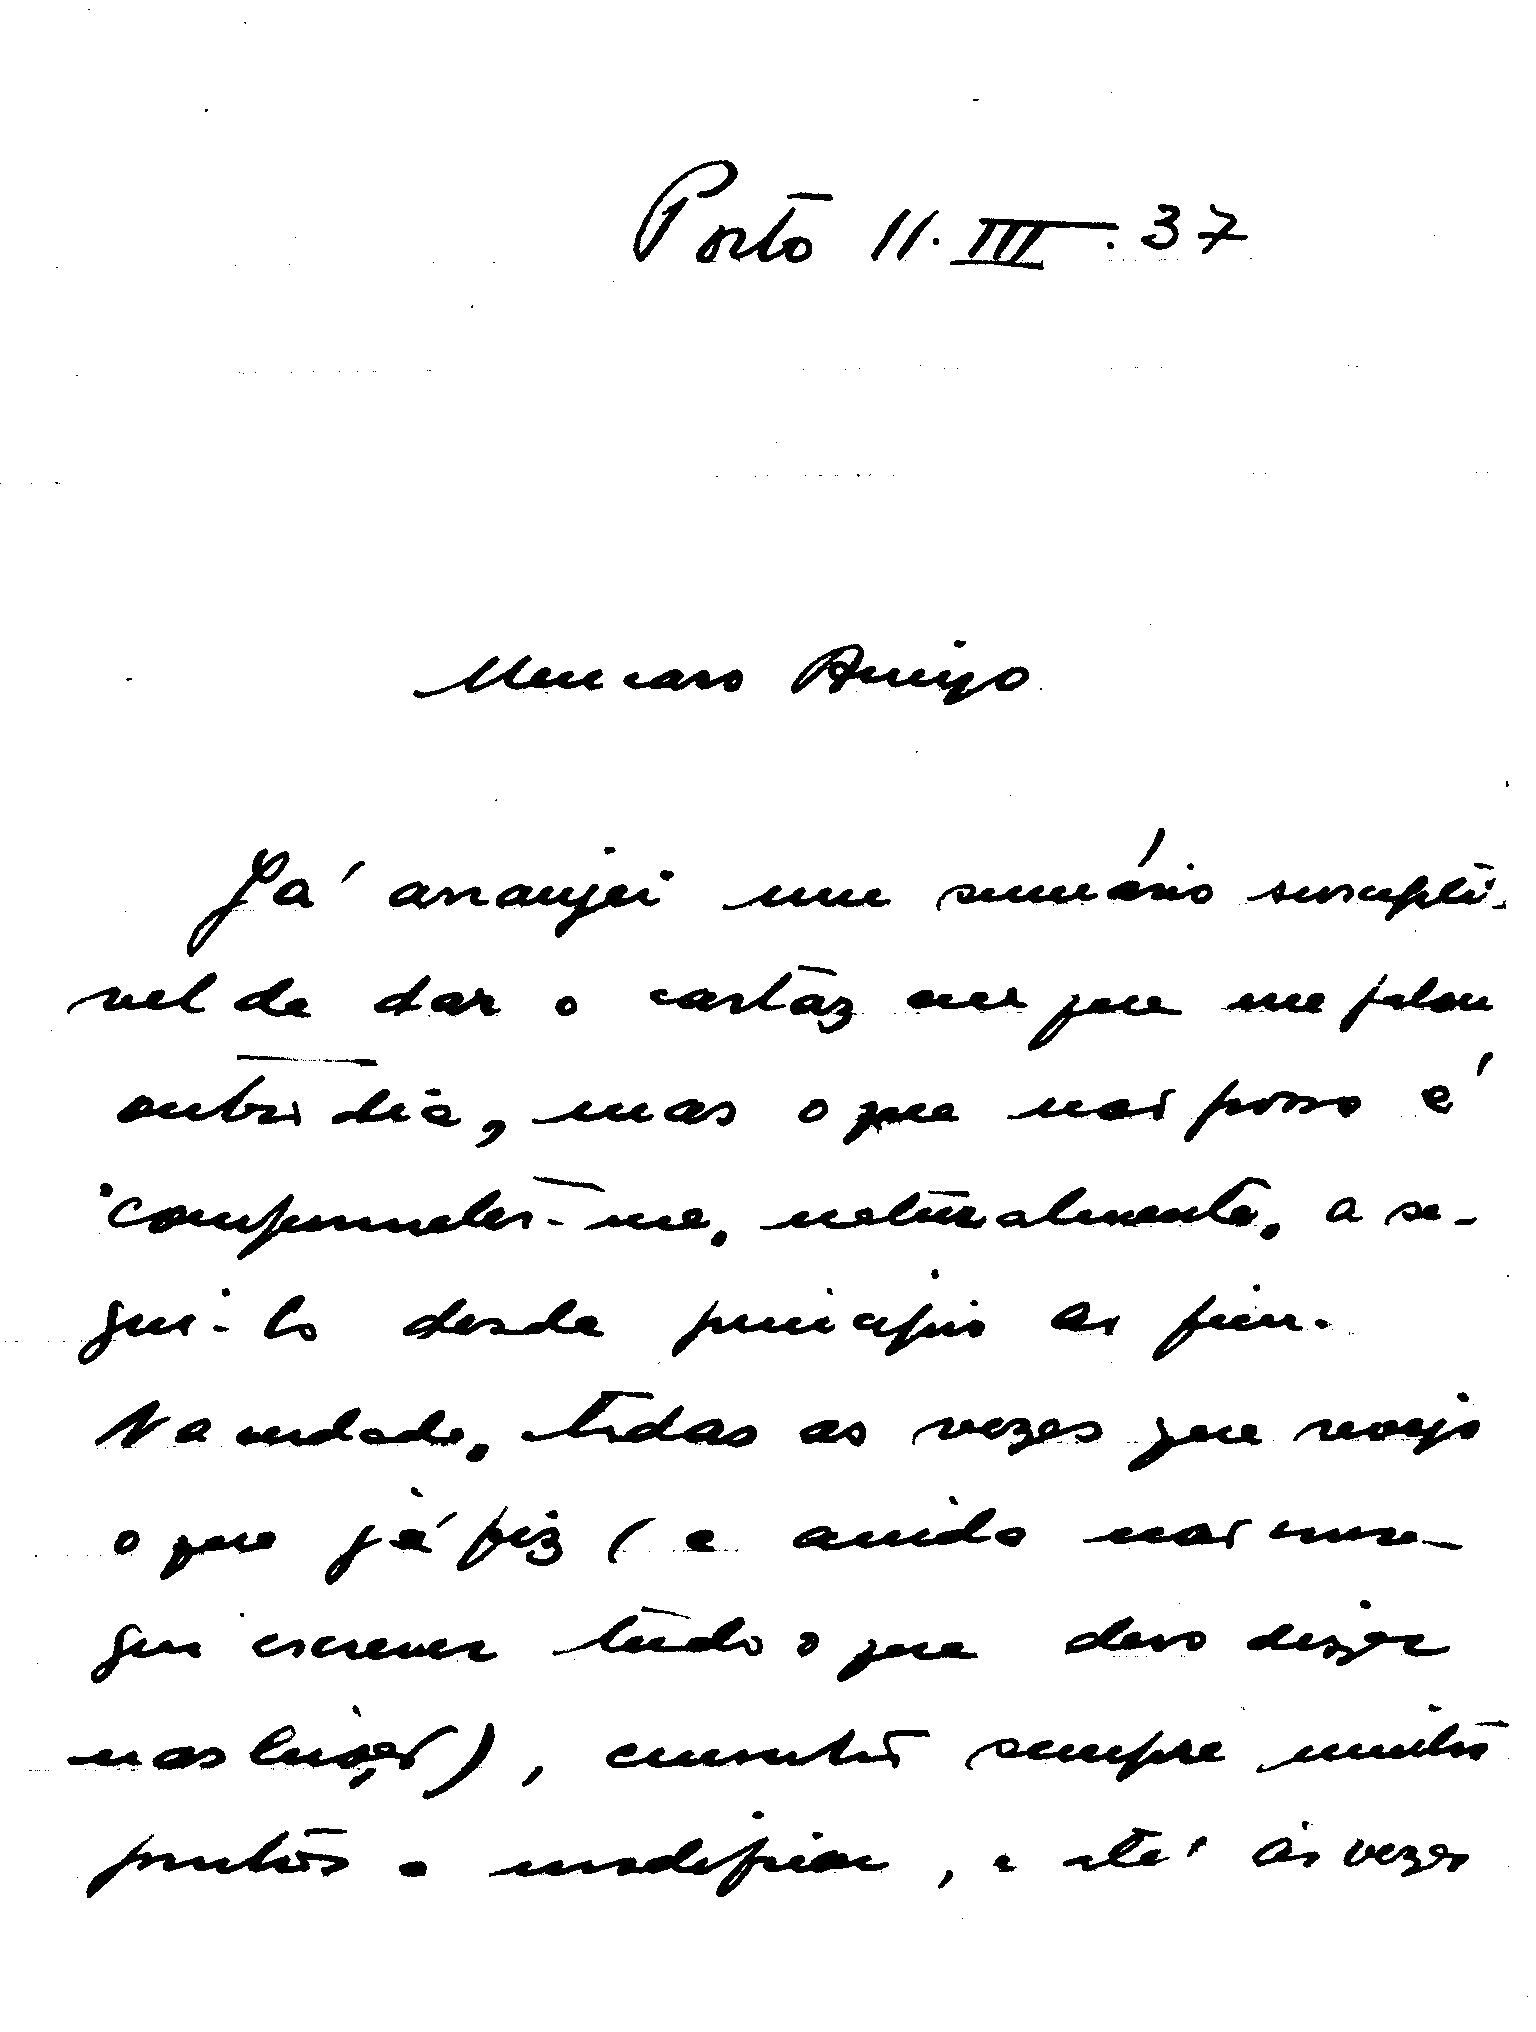 Porto 11.III.37
Meu caro Amigo
Já arranjei um sumário suscepti-
vel de dar o cartaz em que me falou
outro dia, mas o que não posso é
comprometer-me, naturalmente, a se-
gui-lo desde principio ao fim.
Na verdade, todas as vezes que revejo
o que já fiz (e ainda não conse-
gui escrever tudo o que devo dizer
nas lições), encontro sempre muitos
pontos a modificar, e até às vezes